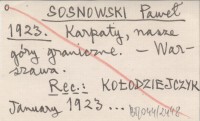 SOSNOWSKI Paweł
1923. Karpaty, nasze
góry graniczne. – War-
szawa.
Rec.: KOŁODZIEJCZYK
January 1923 ...